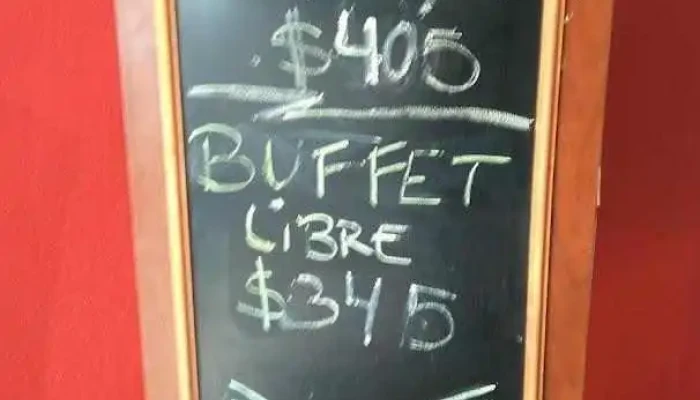 $405
BUFFET
LIBRE
$345